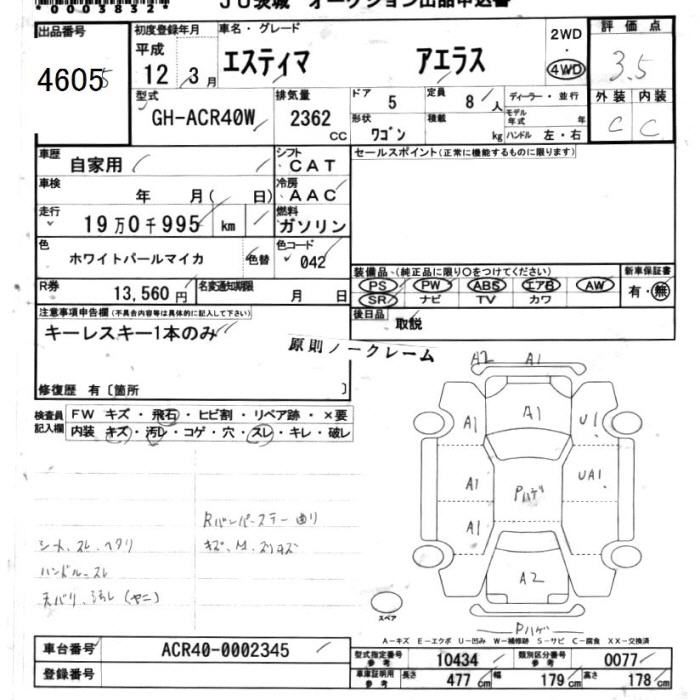 *0003832*
JU茨城 オークション出品申込書
出品番号
4605
初度登録年月
平成
12年 3月
車名・グレード
エスティマ アエラス
2WD
4WD
評価点
3.5
外装 内装
C C
型式
GH-ACR40W
排気量
2362
CC
ドア
5
定員
8人
形状
ワゴン
積載
kg
ディーラー・並行
モデル年式 年
ハンドル 左・右
車歴
自家用
シフト
CAT
セールスポイント(正常に機能するものに限ります)
車検
年 月( 日)
冷房
AAC
走行
19万0千995 km
燃料
ガソリン
色
ホワイトパールマイカ
色替
色コード
042
装備品 (純正品に限り○をつけてください)
PS PW ABS エアB AW
SR ナビ TV カワ
新車保証書
有・無
R券
13,560円
名変通知期限
月 日
後日品
取説
注意事項申告欄(不具合内容等は具体的に記入して下さい)
キーレスキー1本のみ
原則ノークレーム
修復歴 有〔箇所 〕
検査員記入欄
FW キズ・飛石・ヒビ割・リペア跡・×要
内装 キズ・汚レ・コゲ・穴・スレ・キレ・破レ
A2 A1
A1
A1 U1
A1 Pハゲ UA1
A1
A2
Pハゲ
Rバンパーステー曲り
キズ、M、スリキズ
シート、スレ、ヘタリ
ハンドル、スレ
天バリ、汚レ(ヤニ)
スペア
A-キズ E-エクボ U-凹み W-補修跡 S-サビ C-腐食 XX-交換済
車台番号
ACR40-0002345
登録番号
型式指定番号
参考
10434
類別区分番号
参考
0077
車庫証明用
参考
長さ 477cm 幅 179cm 高さ 178cm